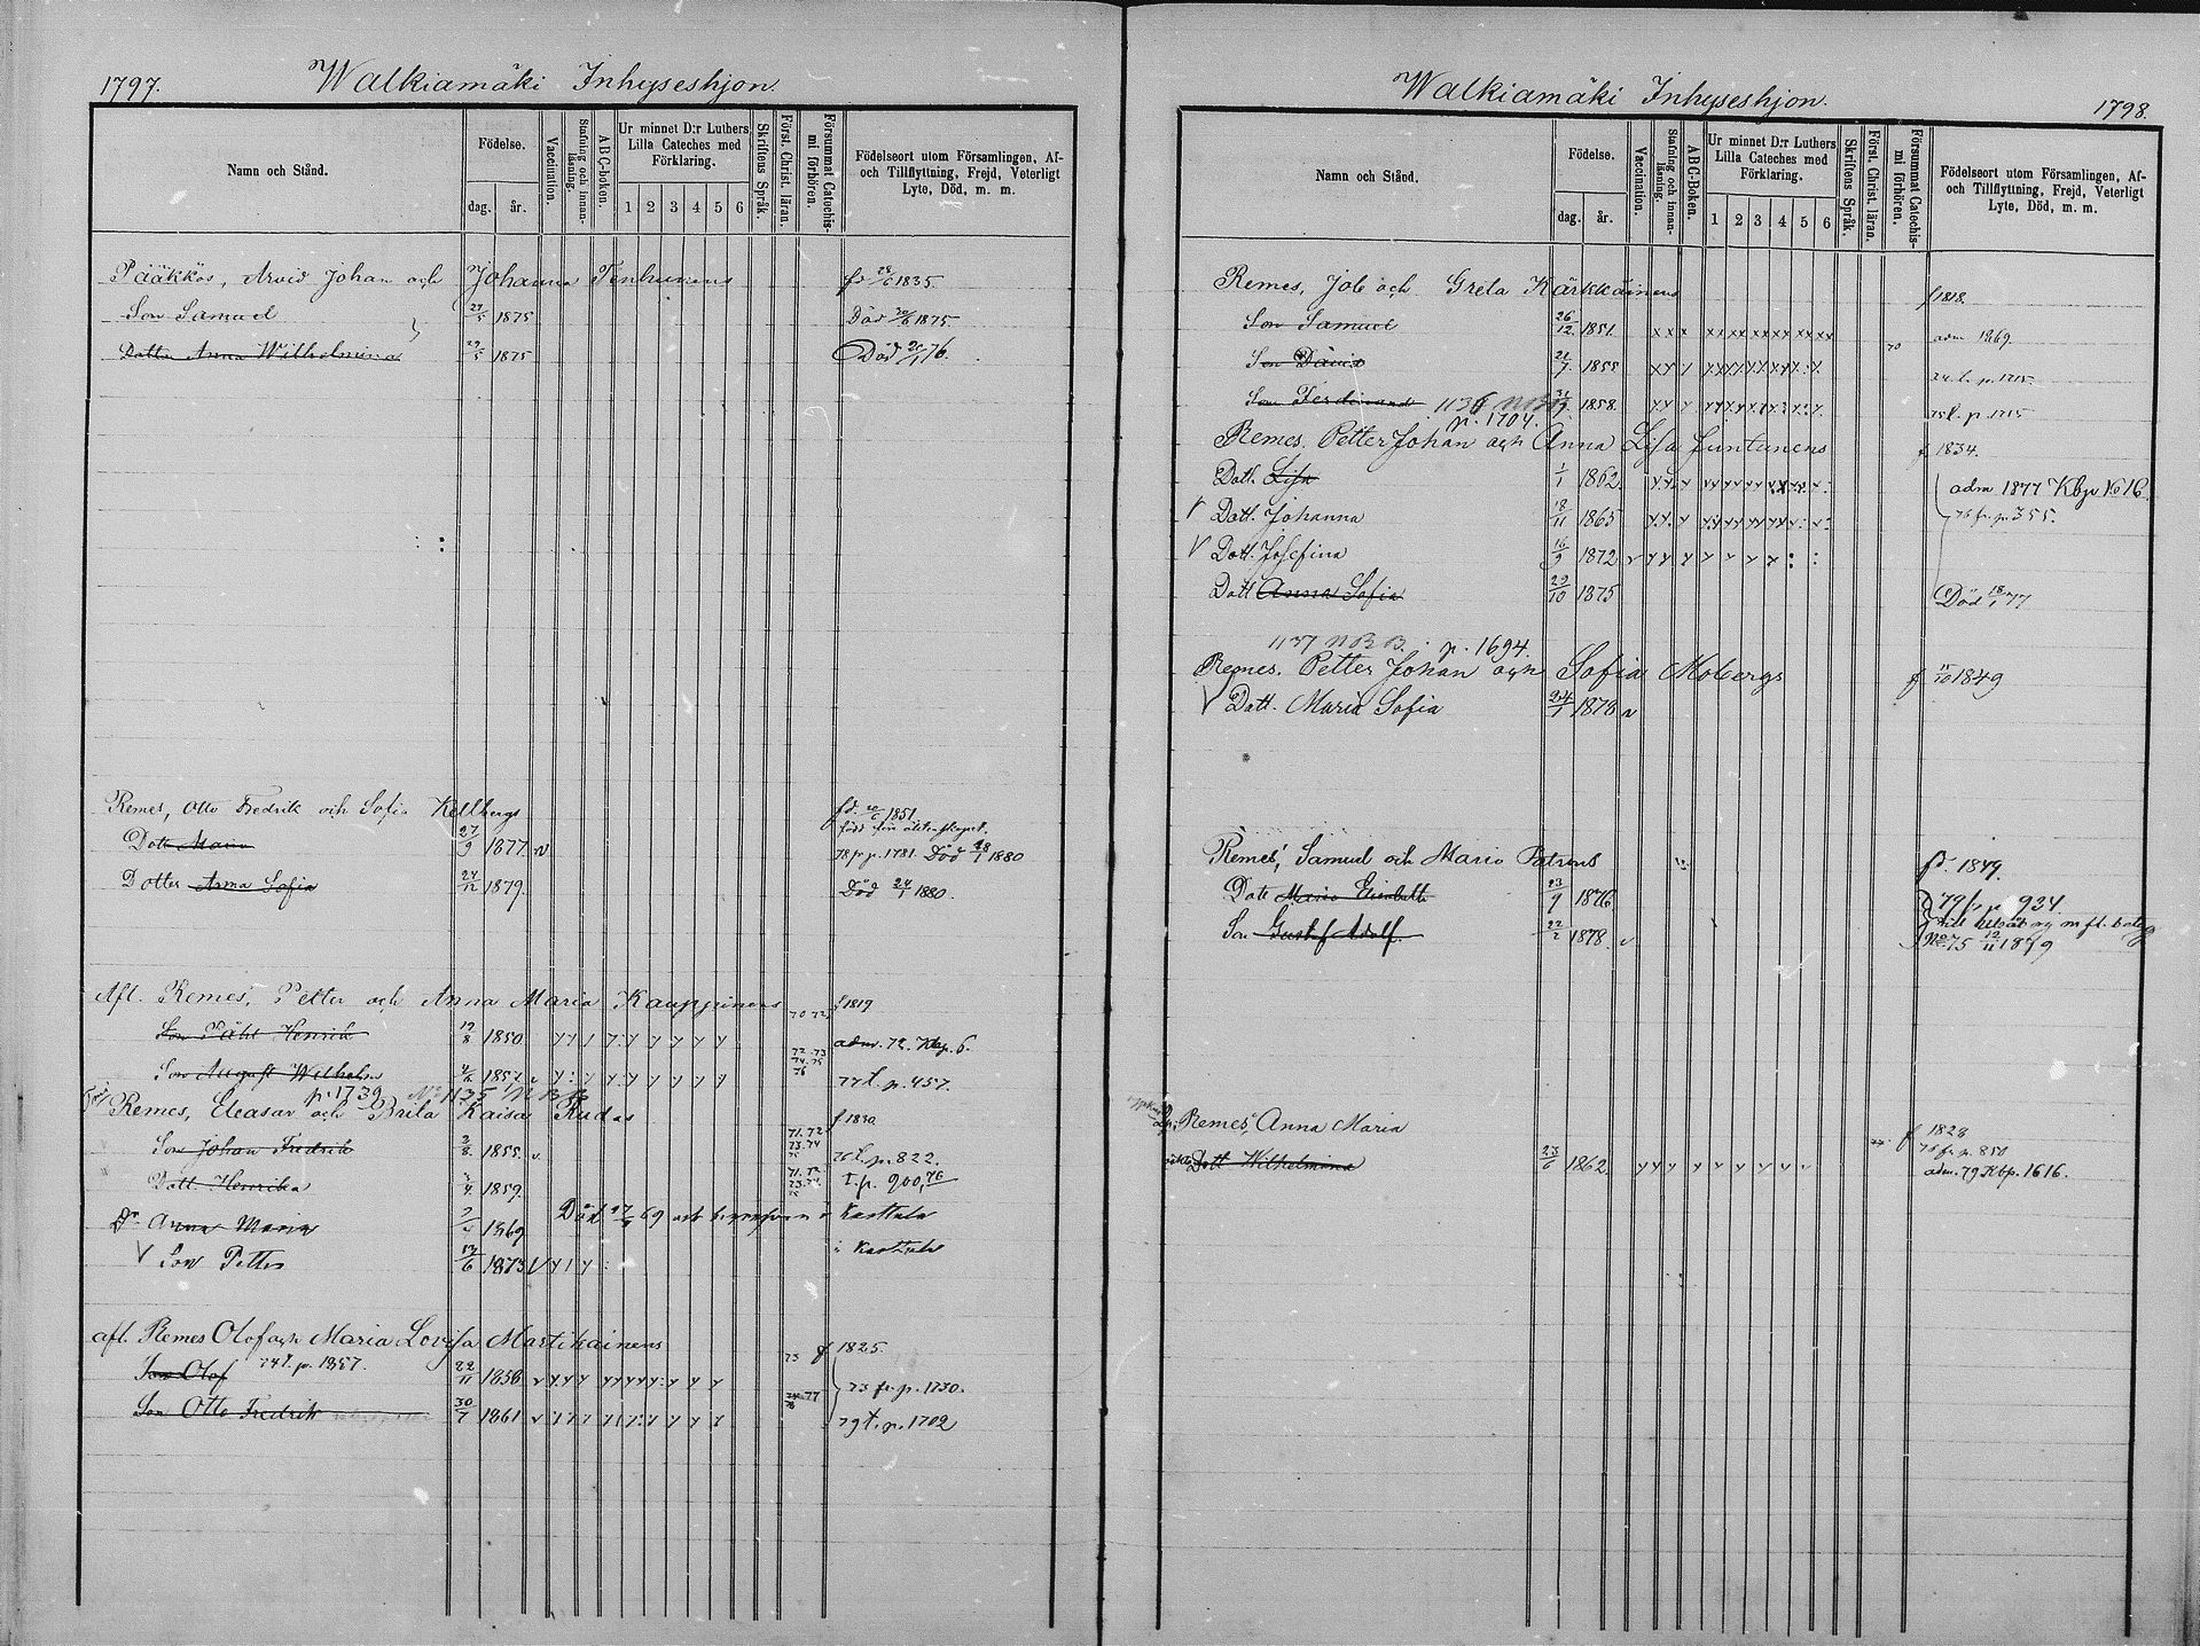 1797.
Walkiamäki Inhyseshjon.
Namn och Stånd.
Födelse.
dag.
år.
Vaccination.
Stafning och innan-läsning.
ABC-boken.
Ur minnet D:r Luthers Lilla Cateches med Förklaring.
1 2 3 4 5 6
Skriftens Språk.
Först. Christ. läran.
Försummat Catechis-mi förhören.
Födelseort utom Församlingen, Af-
och Tillflyttning, Frejd, Veterligt
Lyte, Död, m. m.
Pääkkös, Arvid Johan och Johanna Tenhunens fd 28/6 1835.
Son Samuel 29/5 1875 Död 20/6 1875.
Dotter Anna Wilhelmina 29/5 1875 Död 20/1 76.
Remes, Otto Fredrik och Sofia Kellbergs fd. 20/6 1851.
Dott Maria 27/9 1877. 78 fr p. 1781. Död 18/1 1880
Dotter Anna Sofia 24/12 1879. Död 24/1 1880.
Afl. Remes, Petter och Anna Maria Kauppinens 70 72 f 1819
Son Påhl Henrik 19/8 1850. adm. 72. Kbp. 6.
Son August Wilhelm 1857. 72.73 74.75 76 77 t. p. 457.
p. 1739 No 1135
Remes, Eleasar och Brita Kaisa Rudas f 1830.
Son Johan Fredrik 2/8 1855. 71.72 73.74 76 t. p. 822.
Dott Henrika 1859. 71.72 73.74 t. p. 900, 76
Dr Anna Maria 1869 Död 69 Karttula
Son Petter 6 1873 i Karttula
afl. Remes Olof och Maria Lovisa Martikainens 73 f 1825.
Son Olof 74 t. p. 1857. 22/11 1858. 73 fr. p. 1730.
Son Otto Fredrik 30/7 1861 77 78 79 t. p. 1702
Walkiamäki Inhyseshjon.
1798.
Namn och Stånd.
Födelse.
dag.
år.
Vaccination.
Stafning och innan-läsning.
ABC-Boken.
Ur minnet D:r Luthers Lilla Cateches med Förklaring.
1 2 3 4 5 6
Skriftens Språk.
Först. Christ. läran.
Försummat Catechis-mi förhören.
Födelseort utom Församlingen, Af-
och Tillflyttning, Frejd, Veterligt
Lyte, Död, m. m.
Remes, Job och Greta Kärkkäinens f 1818.
Son Samuel 26/12 1851. 70 adm 1869.
Son David 21/7 1855 74 t. p. 1715.
Son Ferdinand 1136 1858. 75 t. p. 1715
p. 1704.
Remes, Petter Johan och Anna Lisa Juntunens f 1834.
Dott. Lisa 1/1 1862. adm 1877 Kbp No 16
Dott. Johanna 18/11 1865 76 fr. p. 355.
Dott. Josefina 16/9 1872
Dott Anna Sofia 29/10 1875 Död 18/1 77
1137 NB B. p. 1694.
Remes, Petter Johan och Sofia Mobergs f 15/10 1849
Dott. Maria Sofia 24/1 1878
Remes, Samuel och Maria Patrons fd. 1849.
Dott Maria Elisabeth 23/9 1876 79 fl. p 934.
Son Gustaf Adolf. 22/2 1878. No 75 12/11 1879
Remes, Anna Maria f 1828
76 fr. p. 850
Dott Wilhelmina 23/6 1862. adm. 79 Kbp. 1616.